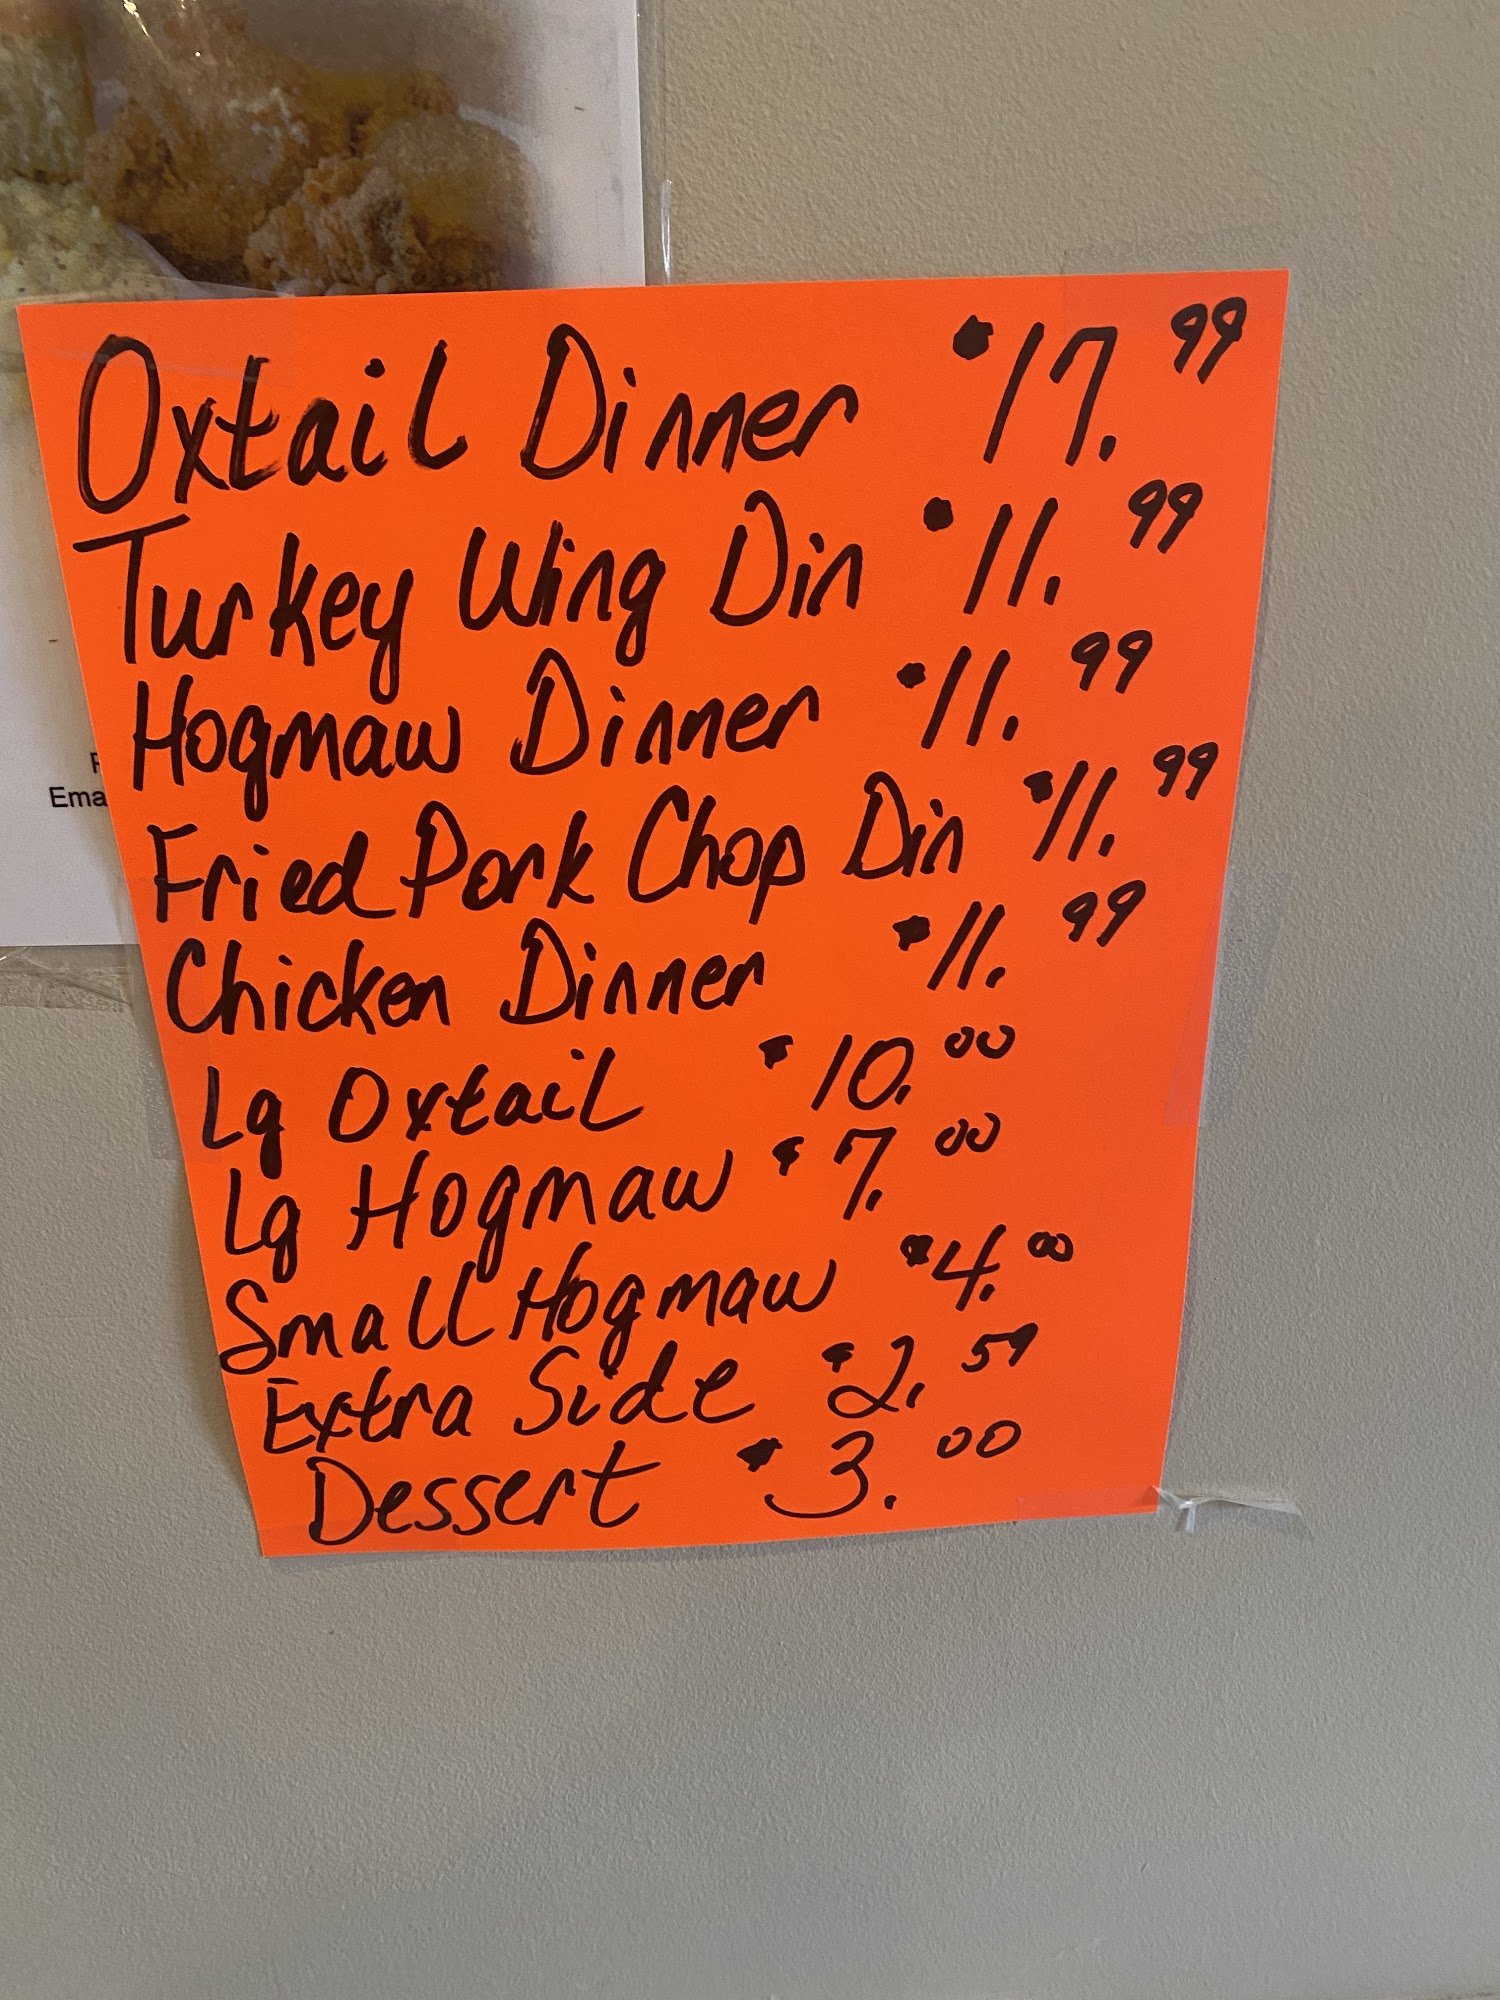 Oxtail Dinner $17.99
Turkey Wing Din $11.99
Hogmaw Dinner $11.99
Fried Pork Chop Din $11.99
Chicken Dinner $11.99
Lg Oxtail $10.00
Lg Hogmaw $7.00
Small Hogmaw $4.00
Extra Side $2.59
Dessert $3.00
Ema